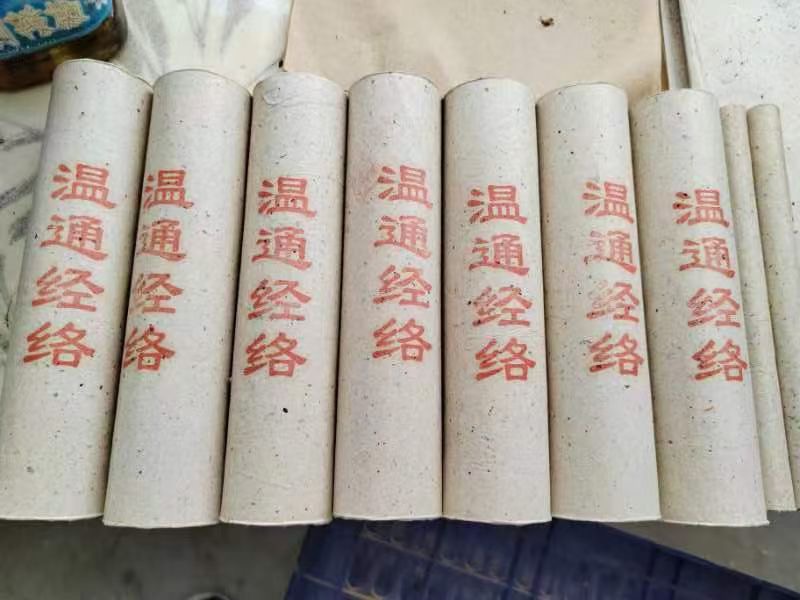 温通经络
温通经络
温通经络
温通经络
温通经络
温通经络
温通经络